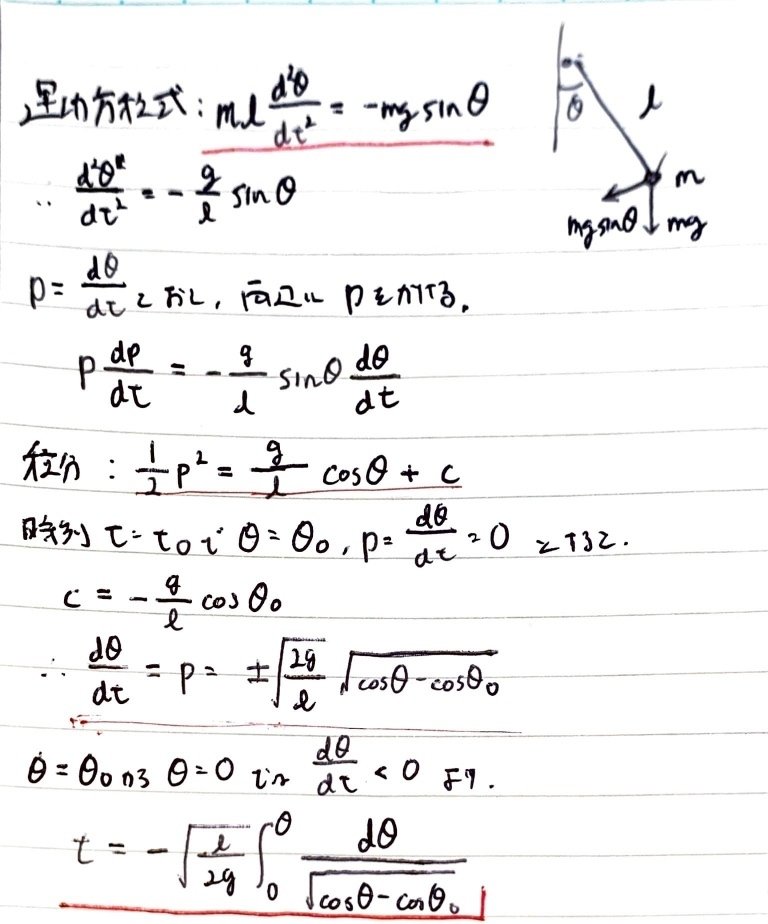 運動方程式 : ml d²θ/dt² = -mg sinθ
θ
l
m
mg sinθ
mg
∴ d²θ/dt² = - g/l sinθ
p = dθ/dt とおし, 両辺に p をかける.
p dp/dt = - g/l sinθ dθ/dt
積分 : 1/2 p² = g/l cosθ + c
時刻 t = t₀ で θ = θ₀, p = dθ/dt = 0 とすると.
c = - g/l cosθ₀
∴ dθ/dt = p = ±√(2g/l) √(cosθ - cosθ₀)
θ = θ₀ から θ = 0 では dθ/dt < 0 より.
t = -√(l/2g) ∫₀^θ dθ/√(cosθ - cosθ₀)